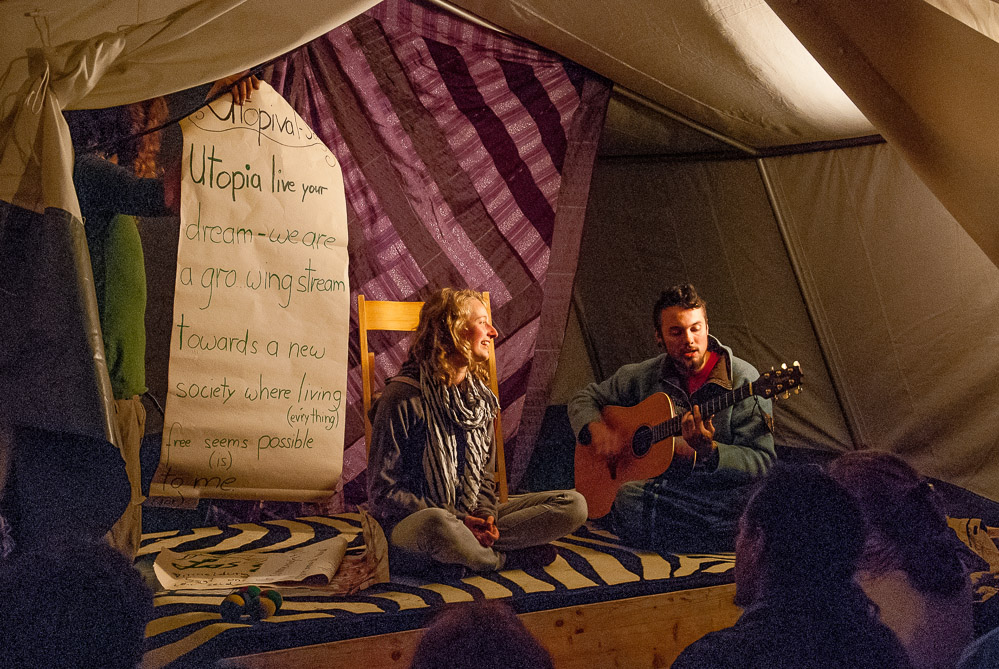 Utopival
Utopia live your
dream - we are
a growing stream
towards a new
society where living
(evrything)
free seems possible
(is)
to me